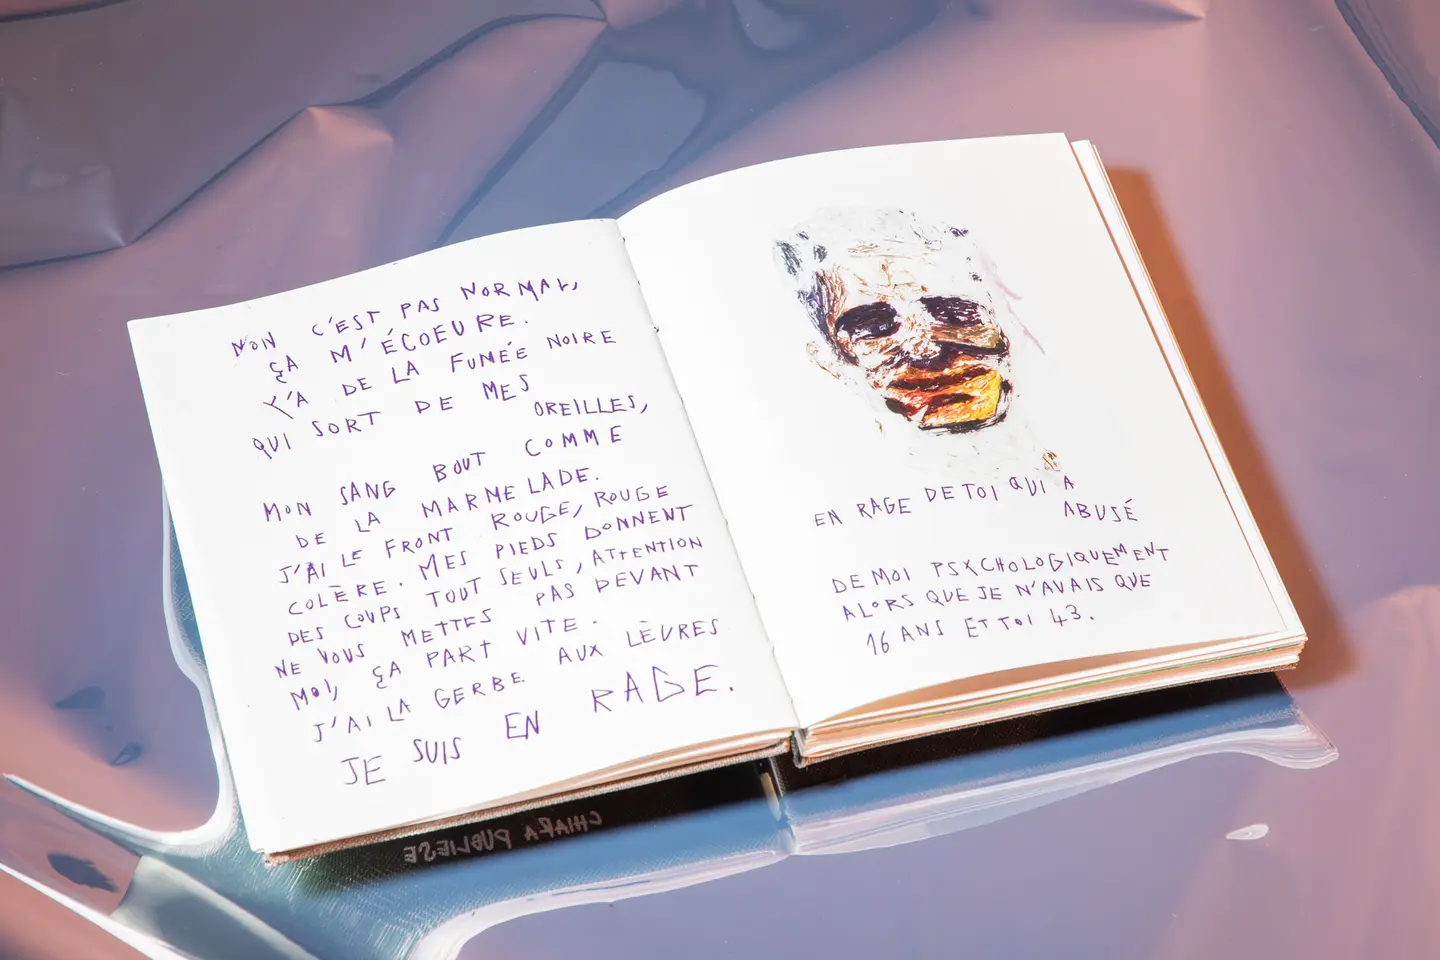 NON C'EST PAS NORMAL,
ÇA M'ÉCOEURE.
Y'A DE LA FUNÉE NOIRE
QUI SORT DE MES
OREILLES,
MON SANG BOUT COMME
DE LA MARNELADE.
J'AI LE FRONT ROUGE, ROUGE
COLÈRE. MES PIEDS DONNENT
DES COUPS TOUT SEULS, ATTENTION
NE VOUS METTES PAS DEVANT
MOI, ÇA PART VITE.
J'AI LA GERBE AUX LÈVRES
JE SUIS EN RAGE.
EN RAGE DE TOI QUI A
ABUSÉ
DE MOI PSYCHOLOGIQUEMENT
ALORS QUE JE N'AVAIS QUE
16 ANS ET TOI 43.
CHIARA PUBLIESE